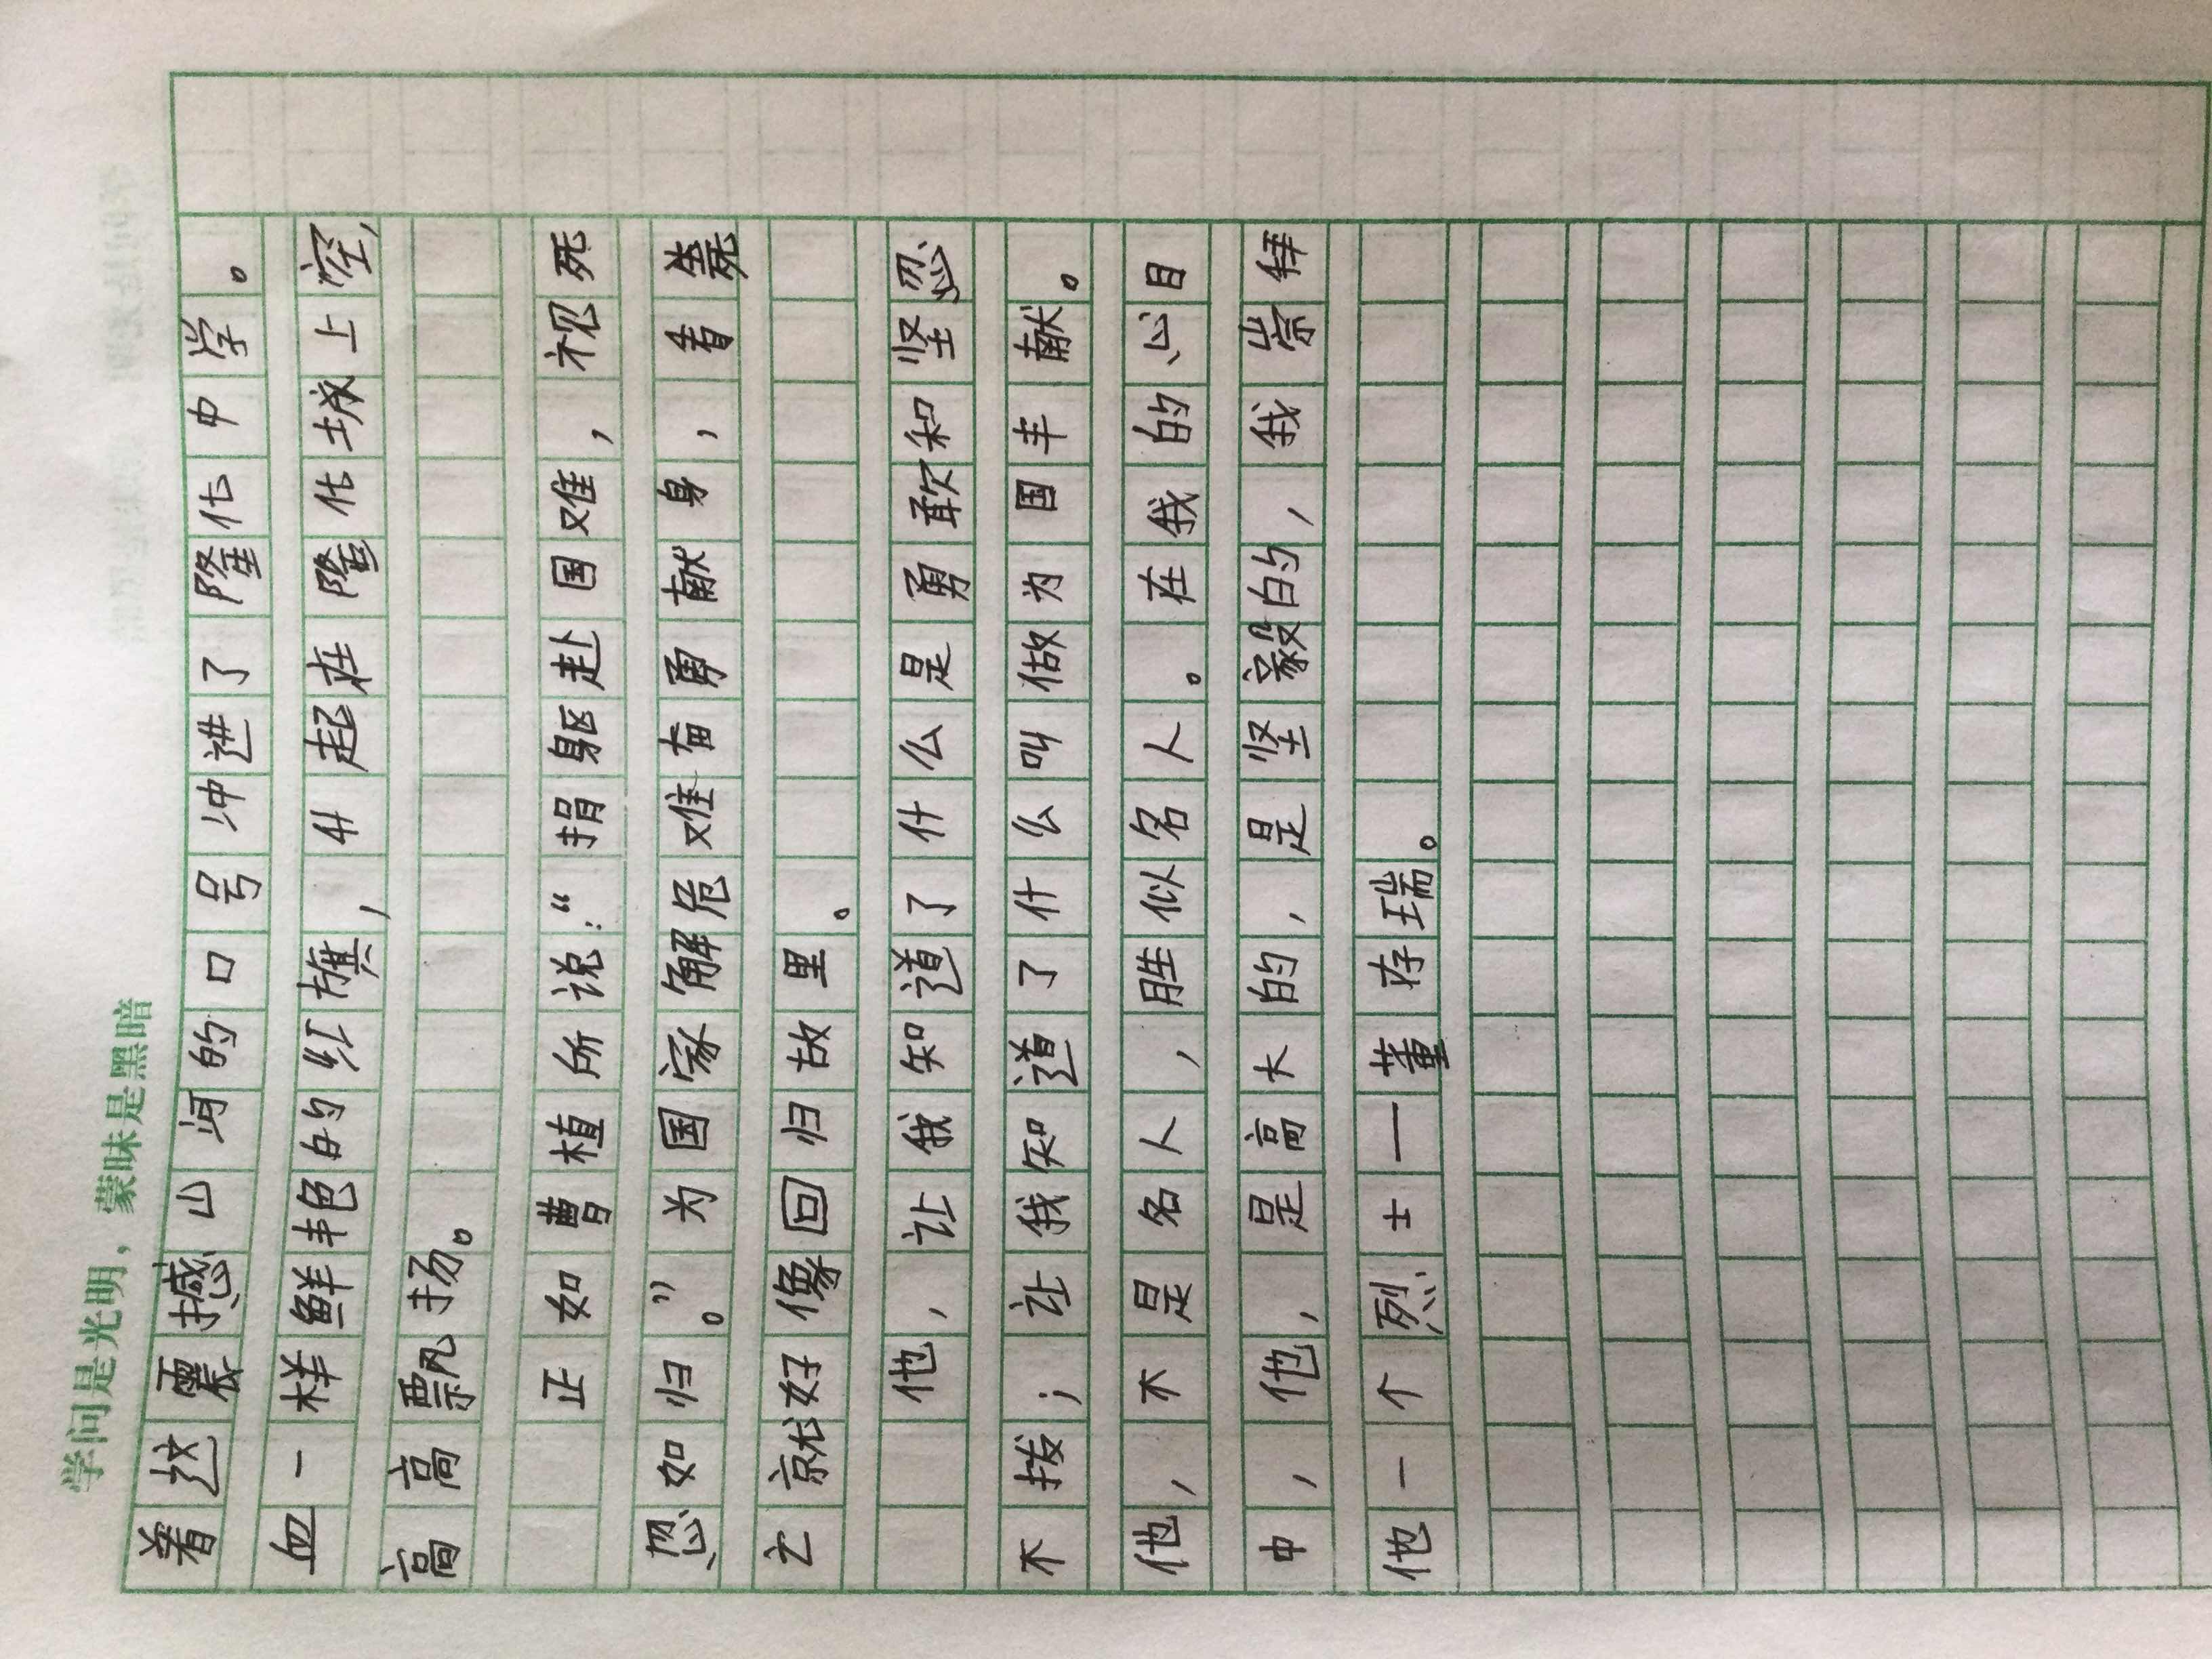 学问是光明，蒙昧是黑暗
着这震撼山河的口号冲进了隆化中学。
血一样鲜艳的红旗，升起在隆化城上空，
高高飘扬。
正如曹植所说：“捐躯赴国难，视死
忽如归。”为国家解危难奋勇献身，看
亡就好像回归故里。
他，让我知道了什么是勇敢和坚忍
不拔；让我知道了什么叫做为国丰献。
他，不是名人，胜似名人。在我的心目
中，他，是高大的，是坚毅的，我崇拜
他一个烈士—董存瑞。